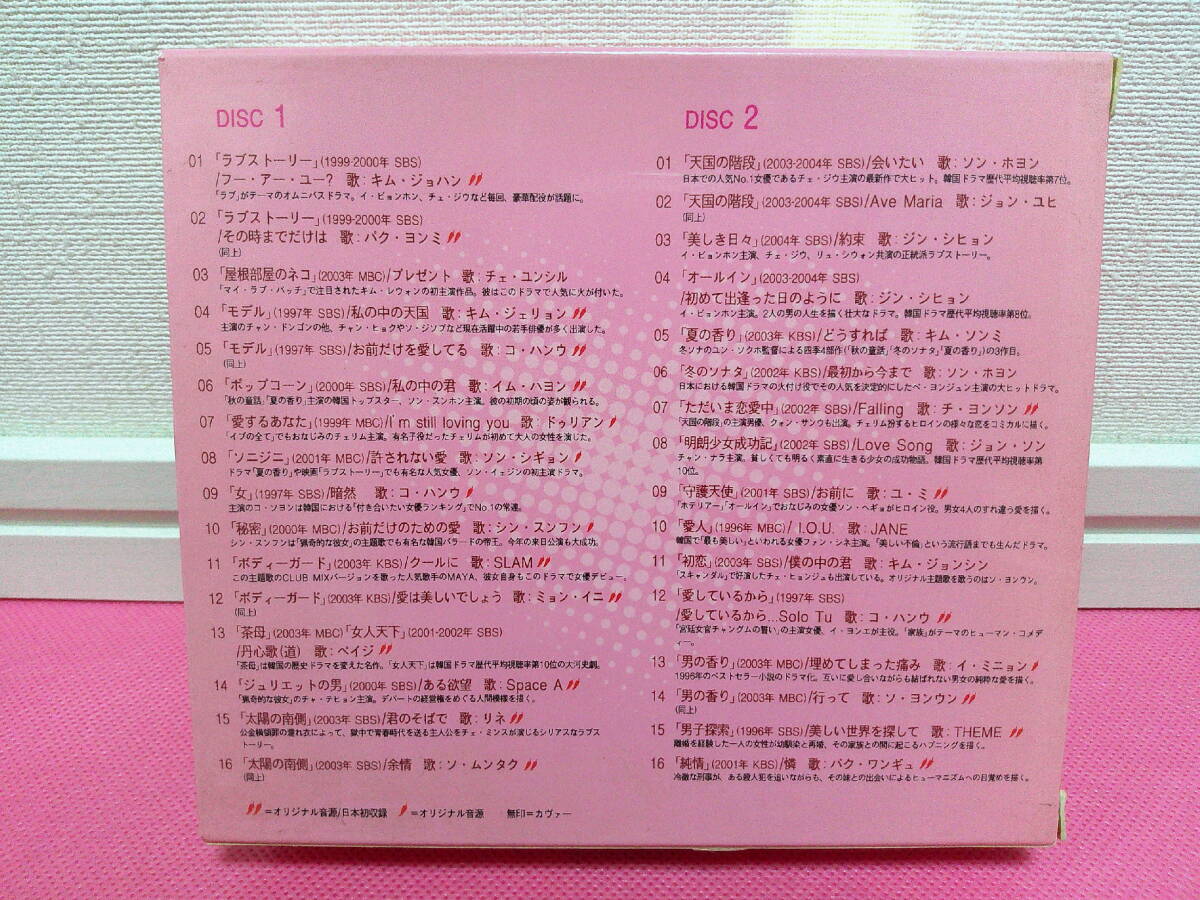 DISC 1
01 「ラブストーリー」(1999-2000年 SBS)
/フー・アー・ユー? 歌:キム・ジョハン
「ラブ」がテーマのオムニバスドラマ。イ・ビョンホン、チェ・ジウなど毎回、豪華配役が話題に。
02 「ラブストーリー」(1999-2000年 SBS)
/その時までだけは 歌:パク・ヨンミ
(同上)
03 「屋根部屋のネコ」(2003年 MBC)/プレゼント 歌:チェ・ユンシル
「マイ・ラブ・パッチ」で注目されたキム・レウォンの初主演作品。彼はこのドラマで人気に火が付いた。
04 「モデル」(1997年 SBS)/私の中の天国 歌:キム・ジェリョン
主演のチャン・ドンゴンの他、チャン・ヒョクやソ・ジソブなど現在活躍中の若手俳優が多く出演した。
05 「モデル」(1997年 SBS)/お前だけを愛してる 歌:コ・ハンウ
(同上)
06 「ポップコーン」(2000年 SBS)/私の中の君 歌:イム・ハヨン
「秋の童話」「夏の香り」主演の韓国トップスター、ソン・スンホン主演。彼の初期の頃の姿が観られる。
07 「愛するあなた」(1999年 MBC)/I'm still loving you 歌:ドゥリアン
「イブの全て」でもおなじみのチェリム主演。有名子役だったチェリムが初めて大人の女性を演じた。
08 「ソニジニ」(2001年 MBC)/許されない愛 歌:ソン・シギョン
ドラマ「夏の香り」や映画「ラブストーリー」でも有名な人気女優、ソン・イェジンの初主演ドラマ。
09 「女」(1997年 SBS)/暗然 歌:コ・ハンウ
主演のコ・ソヨンは韓国における「付き合いたい女優ランキング」でNo.1の常連。
10 「秘密」(2000年 MBC)/お前だけのための愛 歌:シン・スンフン
シン・スンフンは「猟奇的な彼女」の主題歌でも有名な韓国バラードの帝王。今年の来日公演も大成功。
11 「ボディーガード」(2003年 KBS)/クールに 歌:SLAM
この主題歌のCLUB MIXバージョンを歌った人気歌手のMAYA、彼女自身もこのドラマで女優デビュー。
12 「ボディーガード」(2003年 KBS)/愛は美しいでしょう 歌:ミョン・イニ
(同上)
13 「茶母」(2003年 MBC)「女人天下」(2001-2002年 SBS)
/丹心歌(道) 歌:ペイジ
「茶母」は韓国の歴史ドラマを変えた名作。「女人天下」は韓国ドラマ歴代平均視聴率第10位の大河史劇。
14 「ジュリエットの男」(2000年 SBS)/ある欲望 歌:Space A
「猟奇的な彼女」のチャ・テヒョン主演。デパートの経営権をめぐる人間模様を描く。
15 「太陽の南側」(2003年 SBS)/君のそばで 歌:リネ
公金横領罪の濡れ衣によって、獄中で青春時代を送る主人公をチェ・ミンスが演じるシリアスなラブス
トーリー。
16 「太陽の南側」(2003年 SBS)/余情 歌:ソ・ムンタク
(同上)
=オリジナル音源/日本初収録 =オリジナル音源 無印=カヴァー
DISC 2
01 「天国の階段」(2003-2004年 SBS)/会いたい 歌:ソン・ホヨン
日本での人気No.1女優であるチェ・ジウ主演の最新作で大ヒット。韓国ドラマ歴代平均視聴率第7位。
02 「天国の階段」(2003-2004年 SBS)/Ave Maria 歌:ジョン・ユヒ
(同上)
03 「美しき日々」(2004年 SBS)/約束 歌:ジン・シヒョン
イ・ビョンホン主演、チェ・ジウ、リュ・シウォン共演の正統派ラブストーリー。
04 「オールイン」(2003-2004年 SBS)
/初めて出逢った日のように 歌:ジン・シヒョン
イ・ビョンホン主演。2人の男の人生を描く壮大なドラマ。韓国ドラマ歴代平均視聴率第8位。
05 「夏の香り」(2003年 KBS)/どうすれば 歌:キム・ソンミ
冬ソナのユン・ソクホ監督による四季4部作(「秋の童話」「冬のソナタ」「夏の香り」)の3作目。
06 「冬のソナタ」(2002年 KBS)/最初から今まで 歌:ソン・ホヨン
日本における韓国ドラマの火付け役でその人気を決定的にしたペ・ヨンジュン主演の大ヒットドラマ。
07 「ただいま恋愛中」(2002年 SBS)/Falling 歌:チ・ヨンソン
「天国の階段」の主演男優、クォン・サンウも出演。チェリム扮するヒロインの様々な恋をコミカルに描く。
08 「明朗少女成功記」(2002年 SBS)/Love Song 歌:ジョン・ソン
チャン・ナラ主演。貧しくても明るく素直に生きる少女の成功物語。韓国ドラマ歴代平均視聴率第
10位。
09 「守護天使」(2001年 SBS)/お前に 歌:ユ・ミ
「ホテリアー」「オールイン」でおなじみの女優ソン・ヘギョがヒロイン役。男女4人のすれ違う愛を描く。
10 「愛人」(1996年 MBC)/ I.O.U. 歌:JANE
韓国で「最も美しい」といわれる女優ファン・シネ主演。「美しい不倫」という流行語までも生んだドラマ。
11 「初恋」(2003年 SBS)/僕の中の君 歌:キム・ジョンシン
「スキャンダル」で好演したチェ・ヒョンジュも出演している。オリジナル主題歌を歌うのはソン・ヨンウン。
12 「愛しているから」(1997年 SBS)
/愛しているから...Solo Tu 歌:コ・ハンウ
「宮廷女官チャングムの誓い」の主演女優、イ・ヨンエが主役。「家族」がテーマのヒューマン・コメデ
ィー。
13 「男の香り」(2003年 MBC)/埋めてしまった痛み 歌:イ・ミニョン
1996年のベストセラー小説のドラマ化。互いに愛し合いながらも結ばれない男女の純粋な愛を描く。
14 「男の香り」(2003年 MBC)/行って 歌:ソ・ヨンウン
(同上)
15 「男子探索」(1996年 SBS)/美しい世界を探して 歌:THEME
離婚を経験した一人の女性が幼馴染と再婚、その家族との間に起こるハプニングを描く。
16 「純情」(2001年 KBS)/憐 歌:パク・ワンギュ
冷徹な刑事が、ある殺人犯を追いながらも、その妹との出会いによるヒューマニズムへの目覚めを描く。